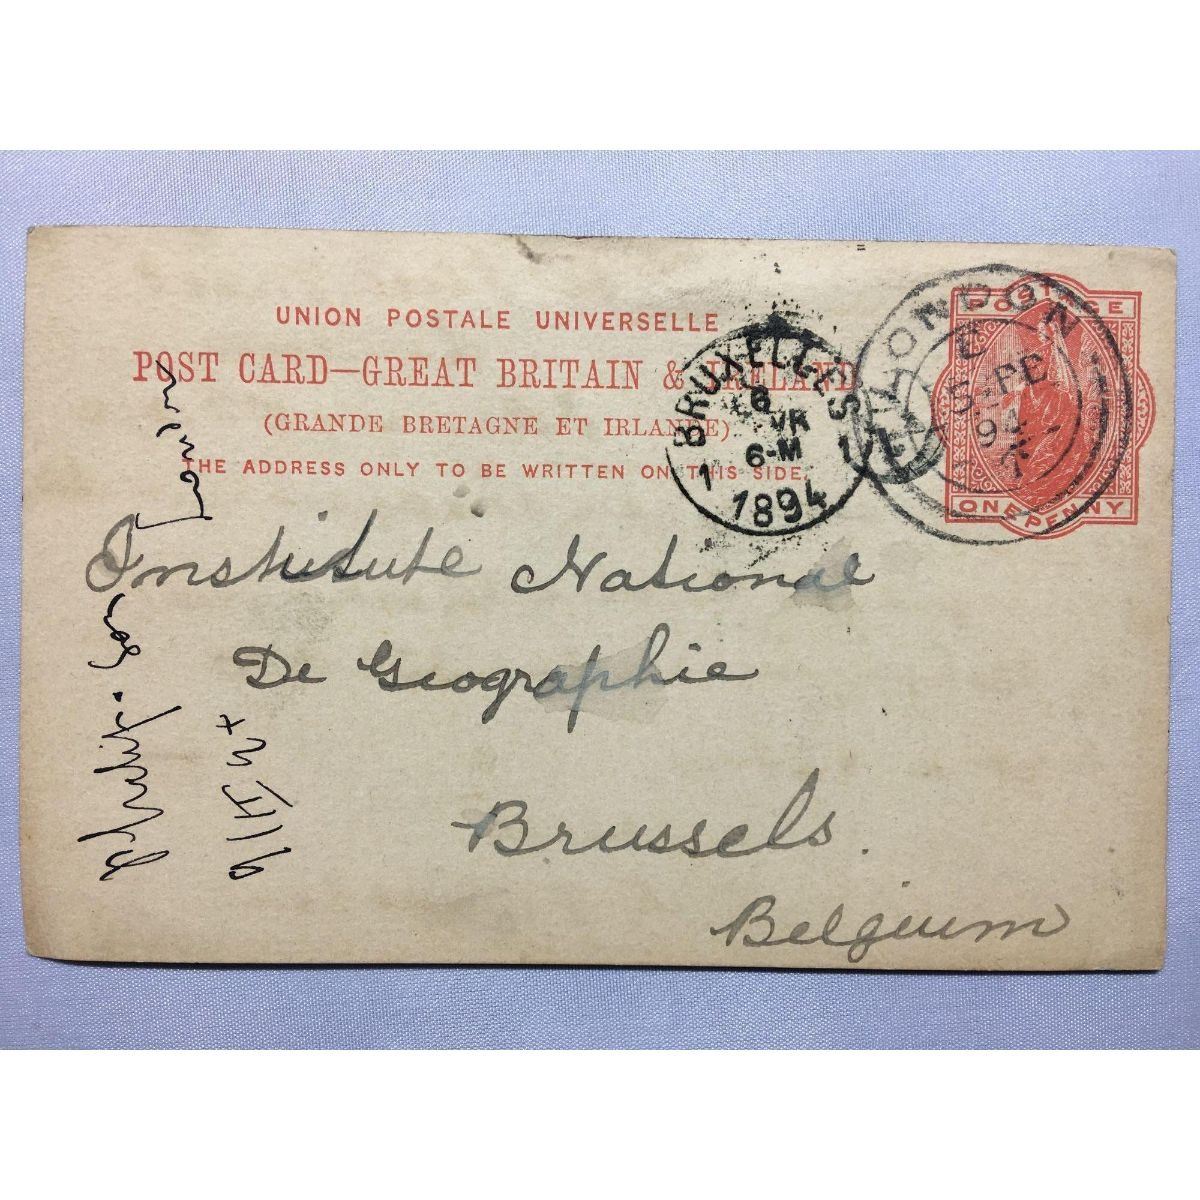 UNION POSTALE UNIVERSELLE
POST CARD—GREAT BRITAIN & IRELAND
(GRANDE BRETAGNE ET IRLANDE)
THE ADDRESS ONLY TO BE WRITTEN ON THIS SIDE.
POSTAGE
ONE PENNY
LONDON
E
5 FE
94
BRUXELLES
1 1
6
VR
6-M
1894
Institute National
De Geographie
Brussels.
Belgium
Philip. Son London